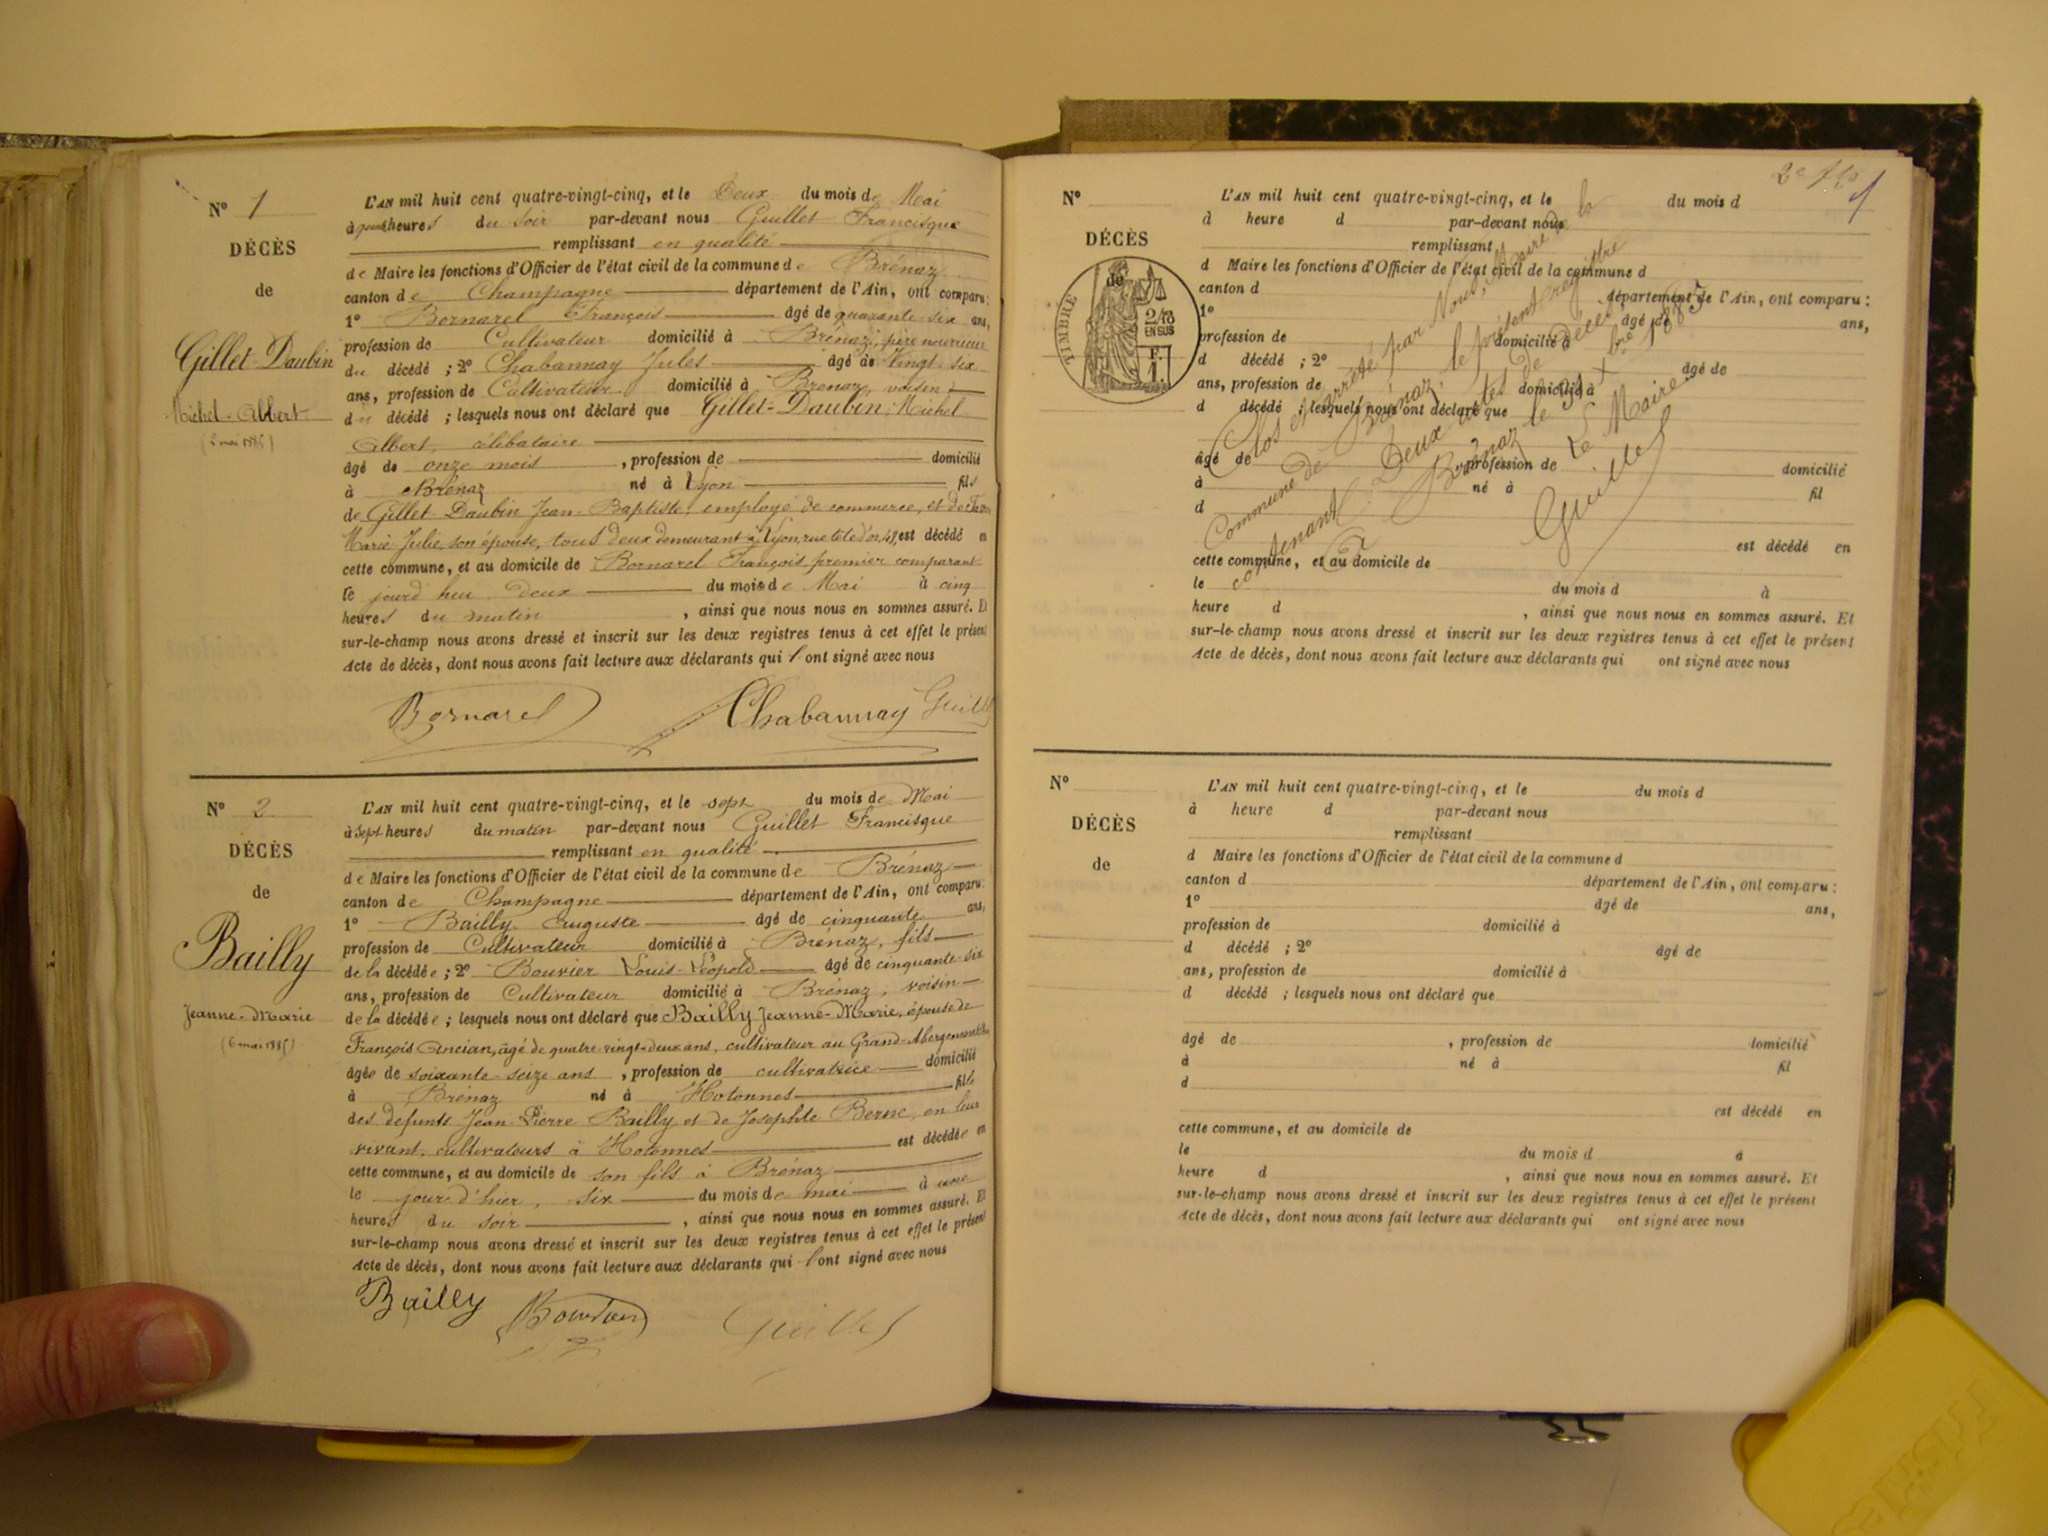 N° 1
DÉCÈS
de
Gillet-Daubin
Michel-Albert
(2 mai 1885)
L'AN mil huit cent quatre-vingt-cinq, et le Deux du mois de Mai
à heures du soir par-devant nous Guillet Francisque
remplissant en qualité
de Maire les fonctions d'Officier de l'état civil de la commune de Brénaz
canton de Champagne département de l'Ain, ont comparu:
1° Bornarel François âgé de quarante-six ans,
profession de Cultivateur domicilié à Brénaz, père nourricier
du décédé ; 2° Chabannay Jules âgé de Vingt-six
ans, profession de Cultivateur domicilié à Brénaz, voisin
du décédé ; lesquels nous ont déclaré que Gillet-Daubin Michel
Albert, célibataire
âgé de onze mois , profession de domicilié
à Brénaz né à Lyon fils
de Gillet-Daubin Jean-Baptiste, employé de commerce, et de
Marie Julie, son épouse, tous deux demeurant à Lyon, rue tête d'or, 48, est décédé en
cette commune, et au domicile de Bornarel François premier comparant
le jourd'hui deux du mois de Mai à cinq
heures du matin , ainsi que nous nous en sommes assuré. Et
sur-le-champ nous avons dressé et inscrit sur les deux registres tenus à cet effet le présent
Acte de décès, dont nous avons fait lecture aux déclarants qui l'ont signé avec nous
Bornarel Chabannay Guillet
N° 2
DÉCÈS
de
Bailly
Jeanne-Marie
(6 mai 1885)
L'AN mil huit cent quatre-vingt-cinq, et le sept du mois de Mai
à sept heures du matin par-devant nous Guillet Francisque
remplissant en qualité
de Maire les fonctions d'Officier de l'état civil de la commune de Brénaz
canton de Champagne département de l'Ain, ont comparu:
1° Bailly Auguste âgé de cinquante ans,
profession de Cultivateur domicilié à Brénaz, fils
de la décédée ; 2° Bouvier Louis-Léopold âgé de cinquante-six
ans, profession de Cultivateur domicilié à Brénaz, voisin
de la décédée ; lesquels nous ont déclaré que Bailly Jeanne-Marie, épouse de
François Ancian, âgé de quatre-vingt-deux ans, cultivateur au Grand-Abergement
âgée de soixante-seize ans , profession de cultivatrice domicilié
à Brénaz né à Hotonnes fille
des défunts Jean-Pierre Bailly et de Josephte Berne, en leur
vivant, cultivateurs à Hotonnes est décédée en
cette commune, et au domicile de son fils à Brénaz
le jour d'hier, six du mois de mai à une
heures du soir , ainsi que nous nous en sommes assuré. Et
sur-le-champ nous avons dressé et inscrit sur les deux registres tenus à cet effet le présent
Acte de décès, dont nous avons fait lecture aux déclarants qui l'ont signé avec nous
Bailly Guillet
N°
DÉCÈS
de
TIMBRE
2/10
EN SUS
F.
1
L'AN mil huit cent quatre-vingt-cinq, et le du mois d
à heure d par-devant nous
remplissant
d Maire les fonctions d'Officier de l'état civil de la commune d
canton d département de l'Ain, ont comparu:
1° âgé de ans,
profession de domicilié à
d décédé ; 2° âgé de
ans, profession de domicilié à
d décédé ; lesquels nous ont déclaré que
âgé de , profession de domicilié
à né à fil
d
est décédé en
cette commune, et au domicile de
le du mois d à
heure d , ainsi que nous nous en sommes assuré. Et
sur-le-champ nous avons dressé et inscrit sur les deux registres tenus à cet effet le présent
Acte de décès, dont nous avons fait lecture aux déclarants qui ont signé avec nous
Clos et arrêté par Nous, Maire de la
Commune de Brénaz, le présent registre
contenant Deux actes de Décès
à Brénaz le 31 Xbre 1885
Le Maire
Guillet
N°
DÉCÈS
de
L'AN mil huit cent quatre-vingt-cinq, et le du mois d
à heure d par-devant nous
remplissant
d Maire les fonctions d'Officier de l'état civil de la commune d
canton d département de l'Ain, ont comparu:
1° âgé de ans,
profession de domicilié à
d décédé ; 2° âgé de
ans, profession de domicilié à
d décédé ; lesquels nous ont déclaré que
âgé de , profession de domicilié
à né à fil
d
est décédé en
cette commune, et au domicile de
le du mois d à
heure d , ainsi que nous nous en sommes assuré. Et
sur-le-champ nous avons dressé et inscrit sur les deux registres tenus à cet effet le présent
Acte de décès, dont nous avons fait lecture aux déclarants qui ont signé avec nous